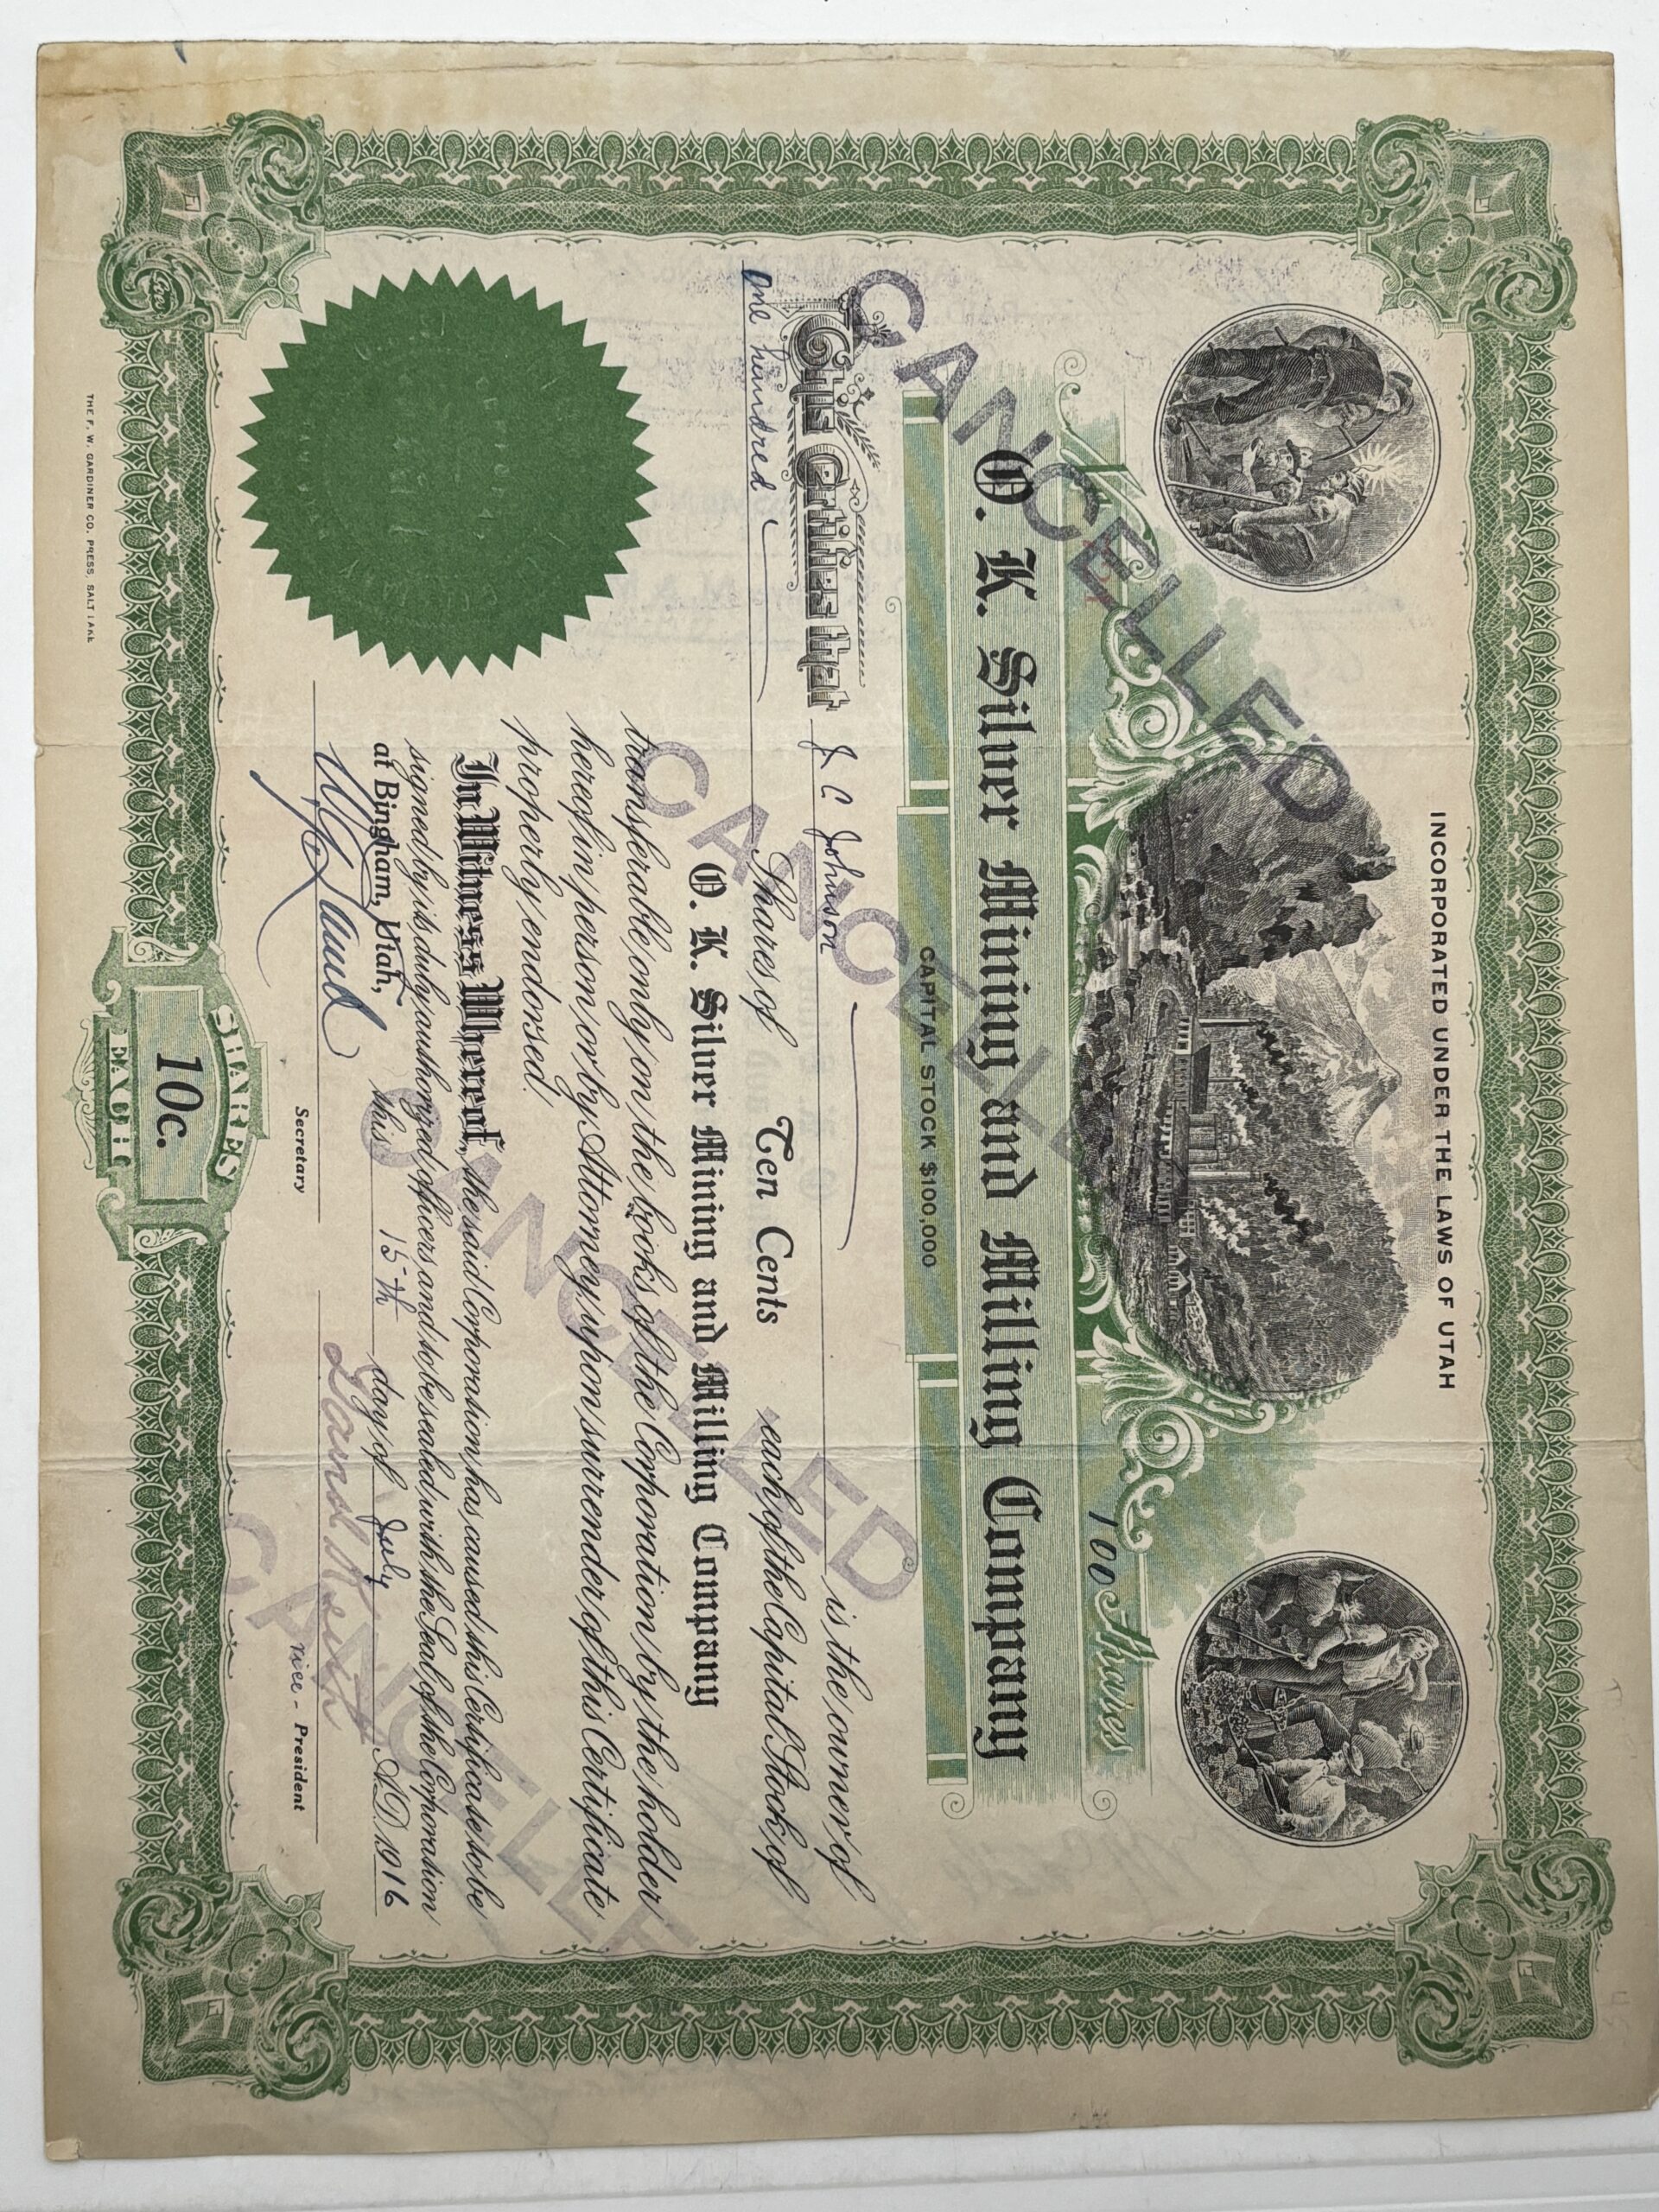 INCORPORATED UNDER THE LAWS OF UTAH
No.
100 Shares
O. K. Silver Mining and Milling Company
CAPITAL STOCK $100,000
This Certifies that J. C Johnson is the owner of
One hundred Shares of Ten Cents each of the Capital Stock of
O. K. Silver Mining and Milling Company
transferable only on the books of the Corporation by the holder
hereof in person or by Attorney upon surrender of this Certificate
properly endorsed.
In Witness Whereof, the said Corporation has caused this Certificate to be
signed by its duly authorized officers and to be sealed with the Seal of the Corporation
at Bingham, Utah, this 15th day of July A.D. 1916
Secretary
vice - President
SHARES
10c.
EACH
THE F. W. GARDINER CO. PRESS, SALT LAKE
CANCELLED
CANCELLED
CANCELLED
CANCELLED